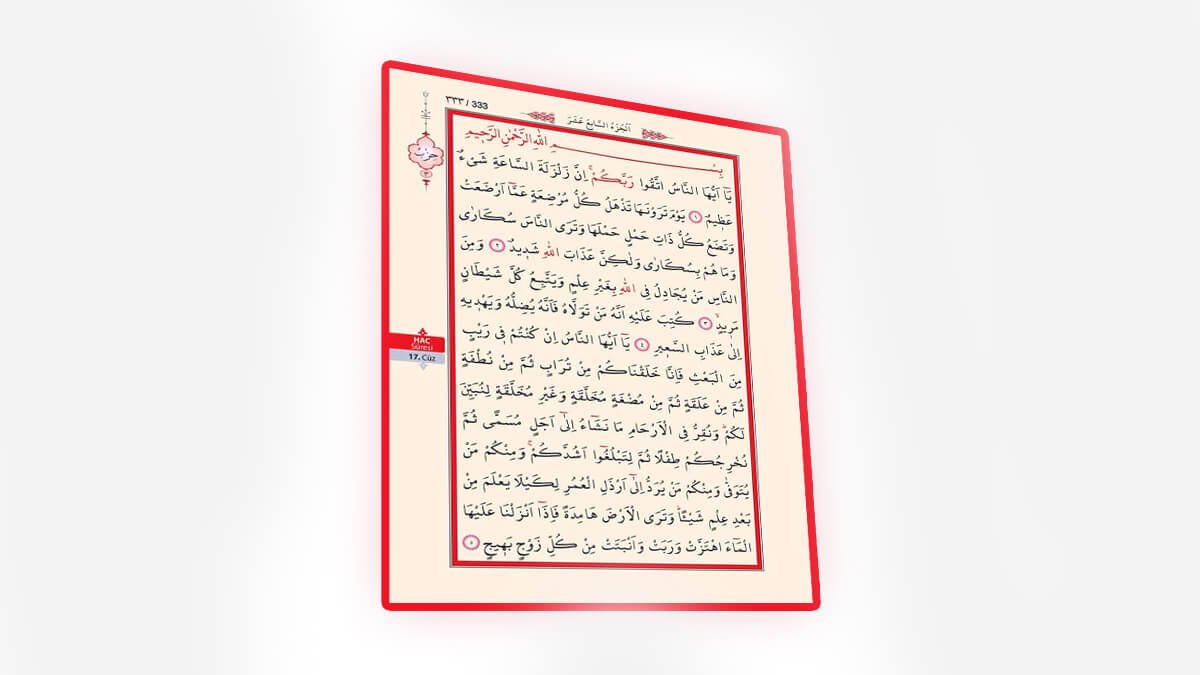 ٣٣٣ / 333
اَلْجُزْءُ السَّابِعَ عَشَرَ
حِزْبٌ
بِسْمِ اللّٰهِ الرَّحْمٰنِ الرَّحٖيمِ
يَٓا اَيُّهَا النَّاسُ اتَّقُوا رَبَّكُمْۚ اِنَّ زَلْزَلَةَ السَّاعَةِ شَيْءٌ
عَظٖيمٌ ﴿١﴾ يَوْمَ تَرَوْنَهَا تَذْهَلُ كُلُّ مُرْضِعَةٍ عَمَّٓا اَرْضَعَتْ
وَتَضَعُ كُلُّ ذَاتِ حَمْلٍ حَمْلَهَا وَتَرَى النَّاسَ سُكَارٰى
وَمَا هُمْ بِسُكَارٰى وَلٰكِنَّ عَذَابَ اللّٰهِ شَدٖيدٌ ﴿٢﴾ وَمِنَ
النَّاسِ مَنْ يُجَادِلُ فِي اللّٰهِ بِغَيْرِ عِلْمٍ وَيَتَّبِعُ كُلَّ شَيْطَانٍ
مَرٖيدٍۙ ﴿٣﴾ كُتِبَ عَلَيْهِ اَنَّهُ مَنْ تَوَلَّاهُ فَاَنَّهُ يُضِلُّهُ وَيَهْدٖيهِ
اِلٰى عَذَابِ السَّعٖيرِ ﴿٤﴾ يَٓا اَيُّهَا النَّاسُ اِنْ كُنْتُمْ فٖي رَيْبٍ
مِنَ الْبَعْثِ فَاِنَّا خَلَقْنَاكُمْ مِنْ تُرَابٍ ثُمَّ مِنْ نُطْفَةٍ
ثُمَّ مِنْ عَلَقَةٍ ثُمَّ مِنْ مُضْغَةٍ مُخَلَّقَةٍ وَغَيْرِ مُخَلَّقَةٍ لِنُبَيِّنَ
لَكُمْؕ وَنُقِرُّ فِي الْاَرْحَامِ مَا نَشَٓاءُ اِلٰٓى اَجَلٍ مُسَمًّى ثُمَّ
نُخْرِجُكُمْ طِفْلًا ثُمَّ لِتَبْلُغُٓوا اَشُدَّكُمْۚ وَمِنْكُمْ مَنْ
يُتَوَفّٰى وَمِنْكُمْ مَنْ يُرَدُّ اِلٰٓى اَرْذَلِ الْعُمُرِ لِكَيْلَا يَعْلَمَ مِنْ
بَعْدِ عِلْمٍ شَيْـًٔاؕ وَتَرَى الْاَرْضَ هَامِدَةً فَاِذَٓا اَنْزَلْنَا عَلَيْهَا
الْمَٓاءَ اهْتَزَّتْ وَرَبَتْ وَاَنْبَتَتْ مِنْ كُلِّ زَوْجٍ بَهٖيجٍ ﴿٥﴾
HAC
Sûresi
17. Cüz